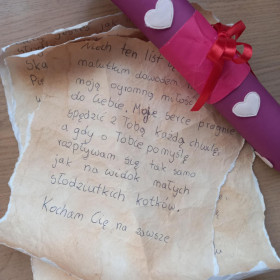 Niech ten list
malutkim dowodem na
moją ogromną miłość
do Ciebie. Moje serce pragnie
spędzić z Tobą każdą chwilę,
a gdy o Tobie pomyślę
rozpływam się tak samo
jak na widok małych
słodziutkich kotków.
Kocham Cię na zawsze